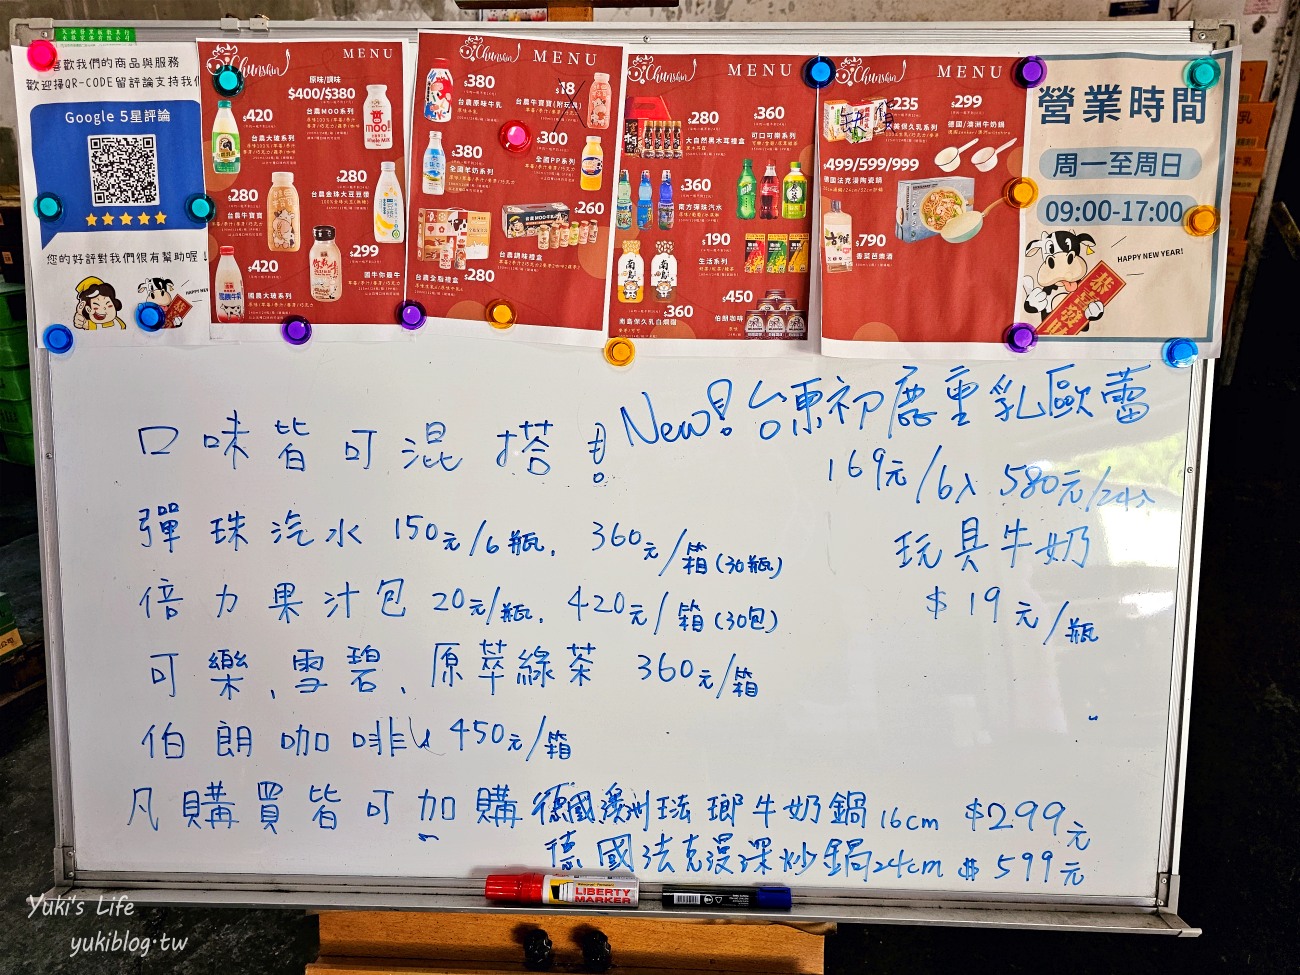 喜歡我們的商品與服務
歡迎掃QR-CODE留評論支持我們
Google 5星評論
您的好評對我們很有幫助喔！
Chunshin MENU
$420
台農大玻系列
原味/調味
$400/$380
台農MOO系列
$280
台農牛寶寶
$280
台農金珠大豆豆漿
$420
國農大玻系列
$299
國牛你報牛
Chunshin MENU
$380
台農原味牛乳
$18
台農牛寶寶(附玩具)
$380
全國羊奶系列
$300
全國PP系列
$260
台農調味禮盒
台農全脂禮盒
$280
Chunshin MENU
$280
大自然黑木耳禮盒
$360
可口可樂系列
$360
南方彈珠汽水
$190
生活系列
$360
南島保久乳白煩糊
$450
伯朗咖啡
Chunshin MENU
$235
$299
德國/澳洲牛奶鍋
$499/599/999
德國法克漫陶瓷鍋
$790
香菜芭樂酒
營業時間
周一至周日
09:00-17:00
HAPPY NEW YEAR!
恭喜發財
口味皆可混搭!
New! 台東初鹿重乳歐蕾
169元/6入 580元/24入
玩具牛奶
$19元/瓶
彈珠汽水 150元/6瓶. 360元/箱(30瓶)
倍力果汁包 20元/瓶. 420元/箱(30包)
可樂、雪碧、原萃綠茶 360元/箱
伯朗咖啡 450元/箱
凡購買皆可加購 德國澳洲琺瑯牛奶鍋16cm $299元
德國法克漫深炒鍋24cm $599元
LIBERTY
MARKER
Yuki's Life
yukiblog.tw